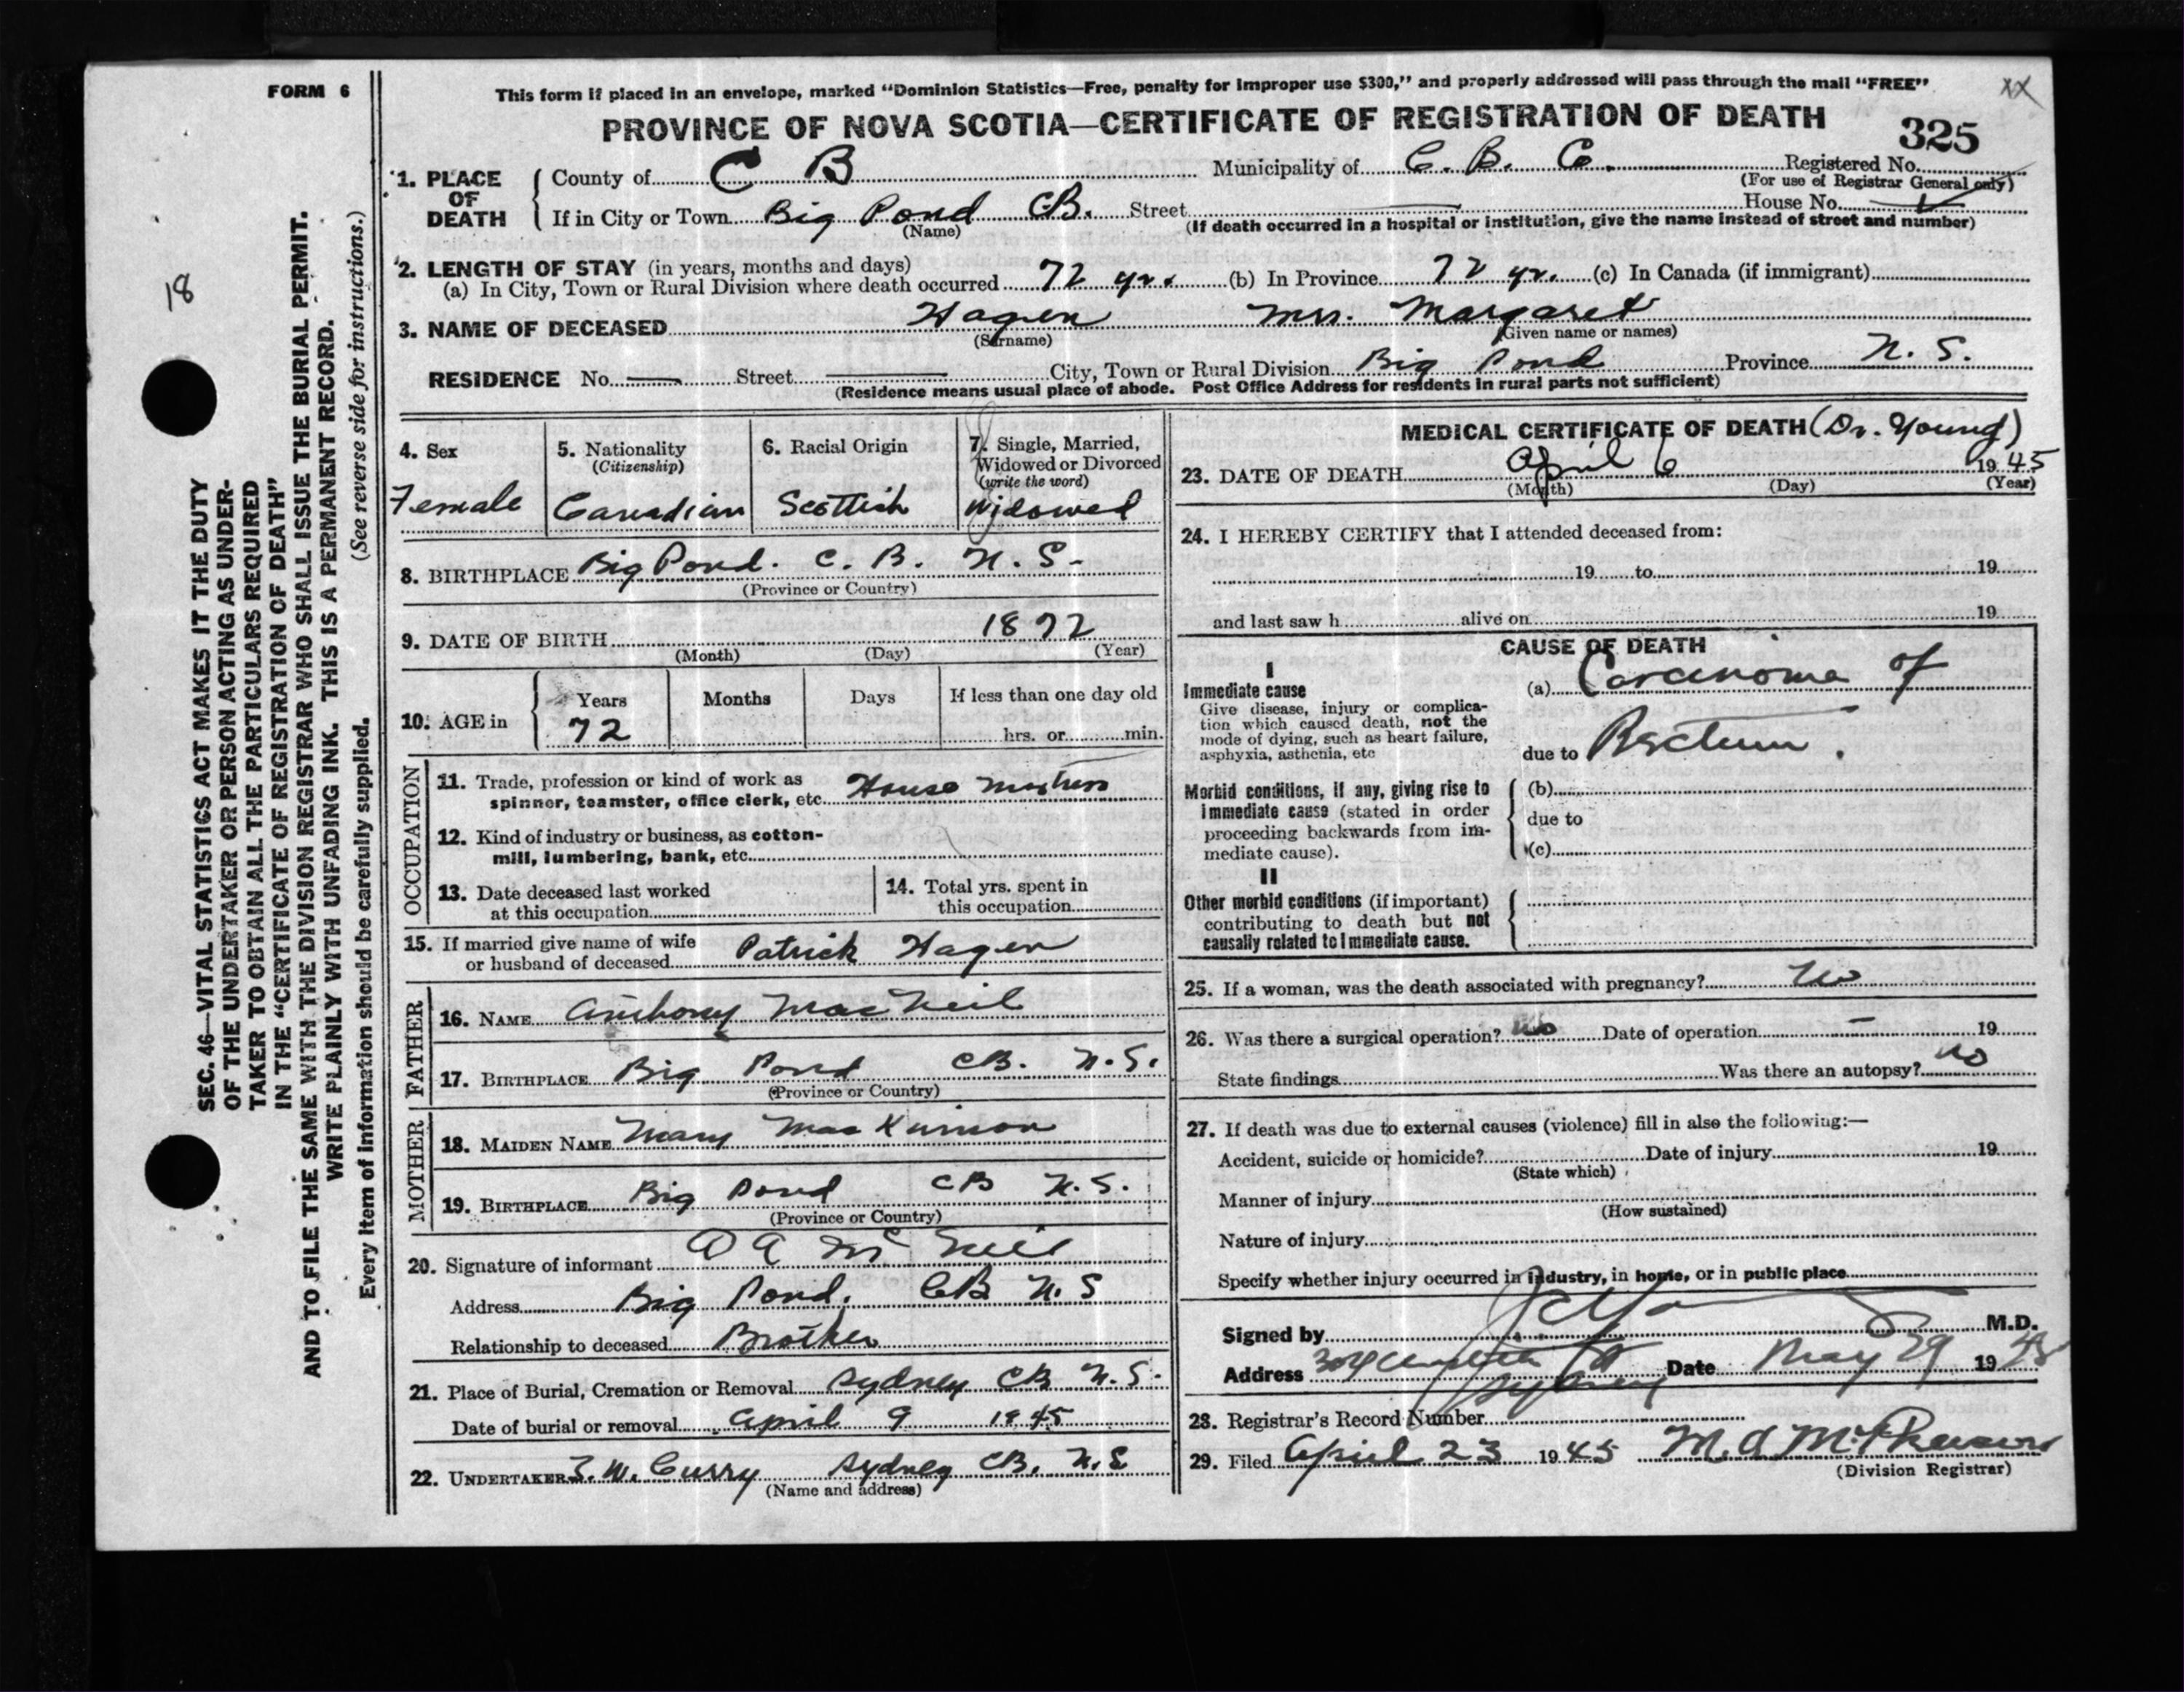 FORM 6
This form if placed in an envelope, marked "Dominion Statistics—Free, penalty for improper use $300," and properly addressed will pass through the mail "FREE"
xx
PROVINCE OF NOVA SCOTIA—CERTIFICATE OF REGISTRATION OF DEATH
325
18
SEC. 46—VITAL STATISTICS ACT MAKES IT THE DUTY
OF THE UNDERTAKER OR PERSON ACTING AS UNDER-
TAKER TO OBTAIN ALL THE PARTICULARS REQUIRED
IN THE "CERTIFICATE OF REGISTRATION OF DEATH"
AND TO FILE THE SAME WITH THE DIVISION REGISTRAR WHO SHALL ISSUE THE BURIAL PERMIT.
WRITE PLAINLY WITH UNFADING INK. THIS IS A PERMANENT RECORD.
Every item of information should be carefully supplied. (See reverse side for instructions.)
1. PLACE OF DEATH
County of C B Municipality of C. B. C. Registered No.
(For use of Registrar General only)
If in City or Town Big Pond CB. Street House No.
(Name) (If death occurred in a hospital or institution, give the name instead of street and number)
2. LENGTH OF STAY (in years, months and days)
(a) In City, Town or Rural Division where death occurred 72 yrs. (b) In Province 72 yr. (c) In Canada (if immigrant)
3. NAME OF DECEASED Hagen Mrs. Margaret
(Surname) (Given name or names)
RESIDENCE No. — Street — City, Town or Rural Division Big Pond Province N. S.
(Residence means usual place of abode. Post Office Address for residents in rural parts not sufficient)
4. Sex
Female
5. Nationality
(Citizenship)
Canadian
6. Racial Origin
Scottish
7. Single, Married,
Widowed or Divorced
(write the word)
Widowed
8. BIRTHPLACE Big Pond. C. B. N. S.
(Province or Country)
9. DATE OF BIRTH 1872
(Month) (Day) (Year)
10. AGE in
Years Months Days If less than one day old
72 hrs. or min.
OCCUPATION
11. Trade, profession or kind of work as
spinner, teamster, office clerk, etc. House
12. Kind of industry or business, as cotton-
mill, lumbering, bank, etc.
13. Date deceased last worked
at this occupation
14. Total yrs. spent in
this occupation
15. If married give name of wife
or husband of deceased Patrick Hagen
FATHER
16. NAME Anthony MacNeil
17. BIRTHPLACE Big Pond CB. N.S.
(Province or Country)
MOTHER
18. MAIDEN NAME Mary MacKinnon
19. BIRTHPLACE Big Pond CB N.S.
(Province or Country)
20. Signature of informant Mc Neil
Address Big Pond. CB N. S
Relationship to deceased Brother
21. Place of Burial, Cremation or Removal Sydney CB N.S.
Date of burial or removal April 9 1945
22. UNDERTAKER W. Curry Sydney CB. N.S
(Name and address)
MEDICAL CERTIFICATE OF DEATH (Dr. Young)
23. DATE OF DEATH April 6 1945
(Month) (Day) (Year)
24. I HEREBY CERTIFY that I attended deceased from:
19 to 19
and last saw h alive on 19
CAUSE OF DEATH
I
Immediate cause
Give disease, injury or complica-
tion which caused death, not the
mode of dying, such as heart failure,
asphyxia, asthenia, etc
(a) Carcinoma of
due to Rectum.
Morbid conditions, if any, giving rise to
immediate cause (stated in order
proceeding backwards from im-
mediate cause).
(b)
due to
(c)
II
Other morbid conditions (if important)
contributing to death but not
causally related to immediate cause.
25. If a woman, was the death associated with pregnancy? No
26. Was there a surgical operation? No Date of operation — 19
State findings Was there an autopsy? No
27. If death was due to external causes (violence) fill in also the following:—
Accident, suicide or homicide? Date of injury 19
(State which)
Manner of injury
(How sustained)
Nature of injury
Specify whether injury occurred in industry, in home, or in public place
Signed by M.D.
Address Sydney Date May 29 1945
28. Registrar's Record Number
29. Filed April 23 1945 M. A McPherson
(Division Registrar)